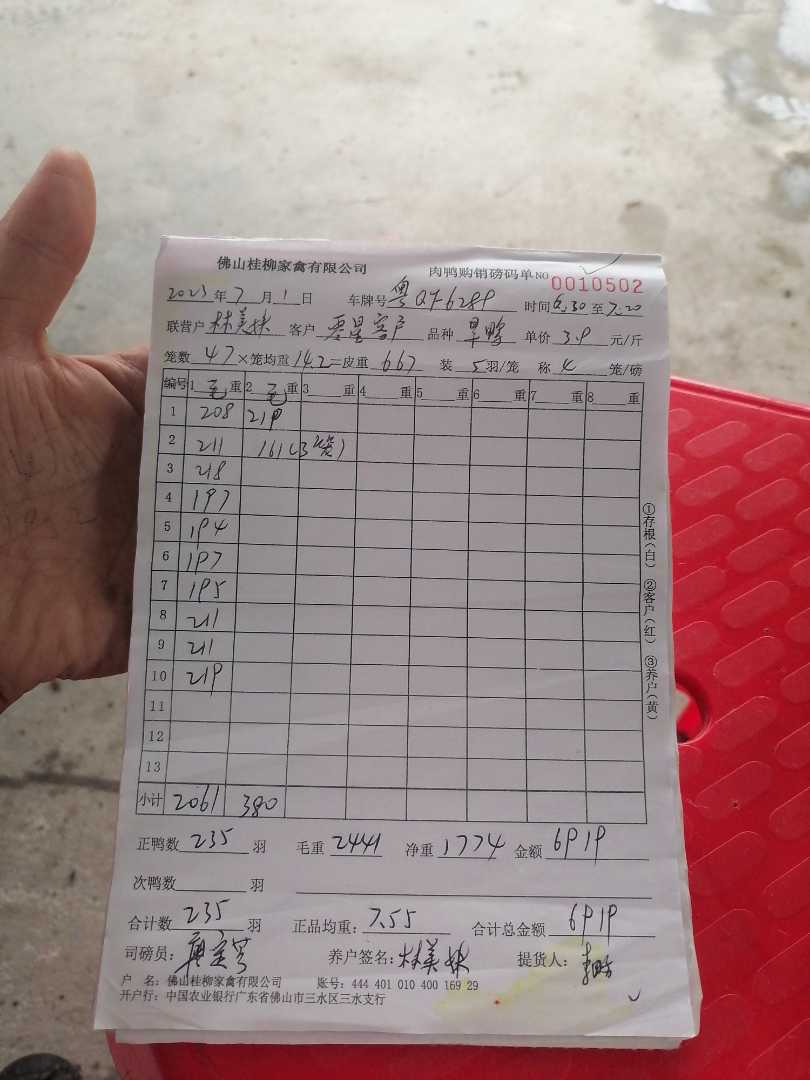 佛山桂柳家禽有限公司 肉鸭购销磅码单 NO 0010502
2023年7月1日 车牌号 粤Q 时间6.30至7.20
联营户 林美妹 客户 零星客户 品种 单价 3.9 元/斤
笼数 47 ×笼均重 14.2 =皮重 667 装 5 羽/笼 称 4 笼/磅
编号 1 毛 重 2 毛 重 3 重 4 重 5 重 6 重 7 重 8 重
1 208 219
2 211 161(3笼)
3 218
4 197
5 194
6 197
7 195
8 211
9 211
10 219
11
12
13
小计 2061 380
①存根(白) ②客户(红) ③养户(黄)
正鸭数 235 羽 毛重 2441 净重 1774 金额 6919
次鸭数 羽
合计数 235 羽 正品均重: 7.55 合计总金额 6919
司磅员: 养户签名: 林美妹 提货人:
户 名: 佛山桂柳家禽有限公司 账号: 444 401 010 400 169 29
开户行: 中国农业银行广东省佛山市三水区三水支行